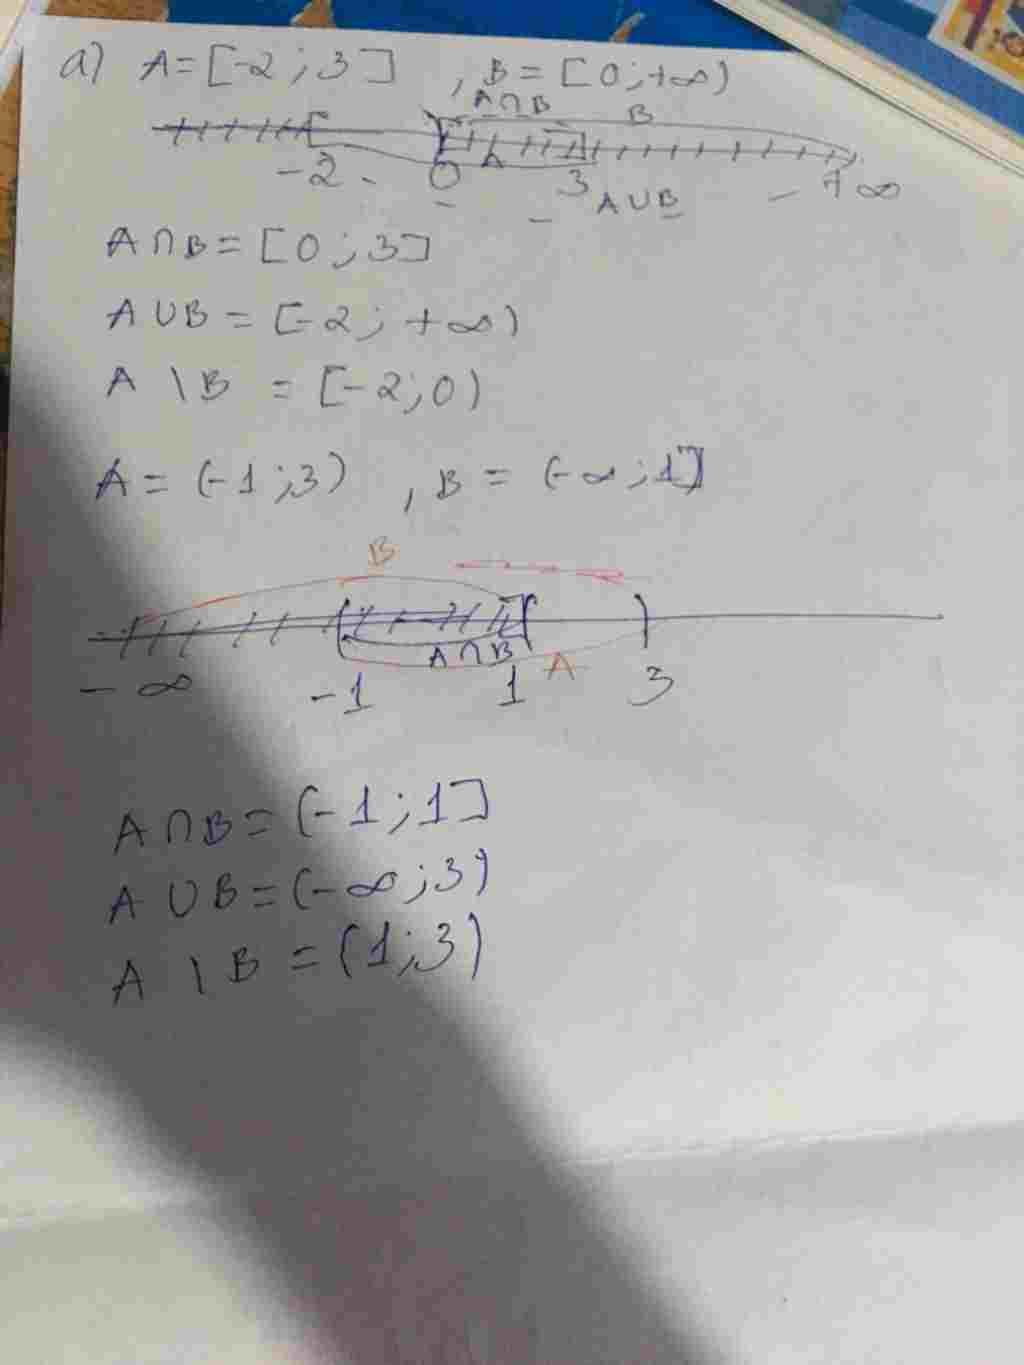 a) A = [-2 ; 3] , B = [0 ; +∞)
A∩B B
A
-2 0 3 +∞
A∪B
A∩B = [0 ; 3]
A∪B = [-2 ; +∞)
A \ B = [-2 ; 0)
A = (-1 ; 3) , B = (-∞ ; 1]
B
A∩B A
-∞ -1 1 3
A∩B = (-1 ; 1]
A∪B = (-∞ ; 3)
A \ B = (1 ; 3)